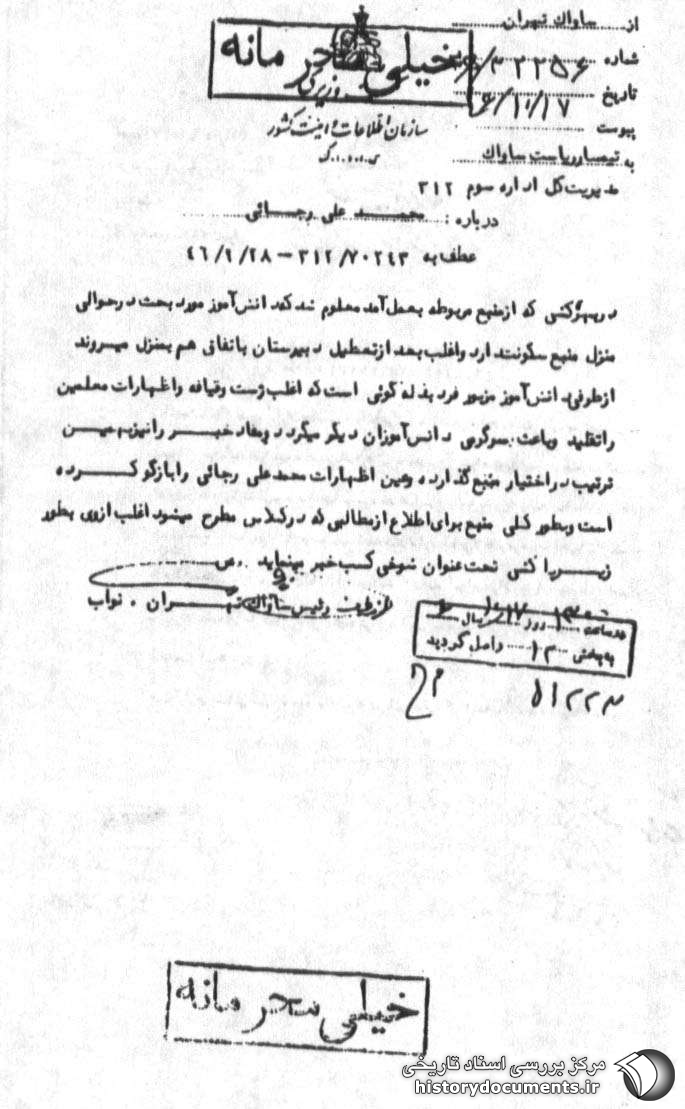 از ساواک تهران
خیلی محرمانه
نخست وزیری
شماره ۳۲۲۵۶/
تاریخ ۴۶/۱۰/۱۷
سازمان اطلاعات و امنیت کشور
س.ا.و.ا.ک
پیوست
به تیمسار ریاست ساواک
مدیریت کل اداره سوم ۳۱۲
درباره : محمد علی رجائی
عطف به ۳۱۲/۷۰۲۴۳ – ۴۶/۹/۲۸
در پیژکشی که از منبع مربوطه بعمل آمد معلوم شد که دانش آموز مورد بحث در حوالی
منزل منبع سکونت دارد و اغلب بعد از تعطیل دبیرستان باتفاق هم بمنزل میروند
از طرفی دانش آموز مزبور فرد بذله گوئی است که اغلب ژست و قیافه و اظهارات معلمین
را تقلید و باعث سرگرمی دانش آموزان دیگر میگردد و مفاد خبر را نیز بهمین
ترتیب در اختیار منبع گذارده و عین اظهارات محمد علی رجائی را بازگو کرده
است و بطور کلی منبع برای اطلاع از مطالبی که در کلاس مطرح میشود اغلب از وی بطور
زیرپا کشی تحت عنوان شوخی کسب خبر مینماید . ص
از طرف رئیس ساواک تهران . نواب
در ساعت روز ۱۰/۱۷ سال
به بخش ۱۲ واصل گردید
۵۱۲۲۳
خیلی محرمانه
مرکز بررسی اسناد تاریخی
historydocuments.ir